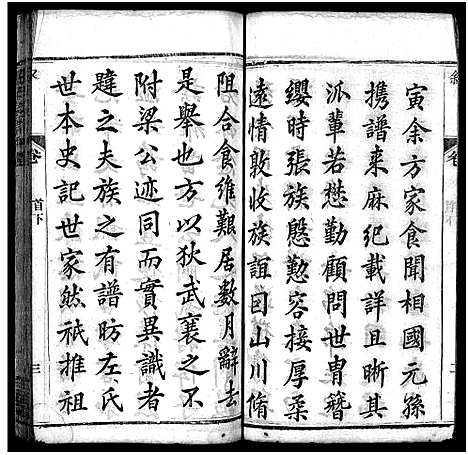 寅余方家食聞相國元孫
携譜来麻紀載詳且晰其
派輩若懋勤顧問世冑簪
纓時張族慇懃容接厚柔
遠情敦收族誼囙山川脩
阻合食維艱居數月辭去
是舉也方以狄武襄之不
附梁公迹同而實異識者
韙之夫族之有譜昉左氏
世本史記世家然祇推祖
卷
首下
三